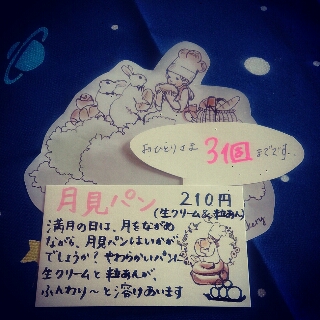 おひとりさま 3個 までです。
月見パン 210円
(生クリーム&粒あん)
満月の日は、月をながめ
ながら、月見パンはいかが
でしょうか?やわらかいパンに
生クリームと粒あんが、
ふんわり〜と溶けあいます